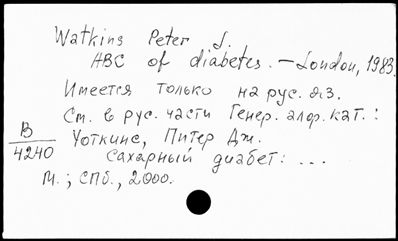 Watkins Peter J.
ABC of diabetes. – London, 1983.
Имеется только на рус. яз.
См. в рус. части Генер. алф. кат.:
В
4240
Уоткинс, Питер Дж.
Сахарный диабет: ...
М.; СПб., 2000.